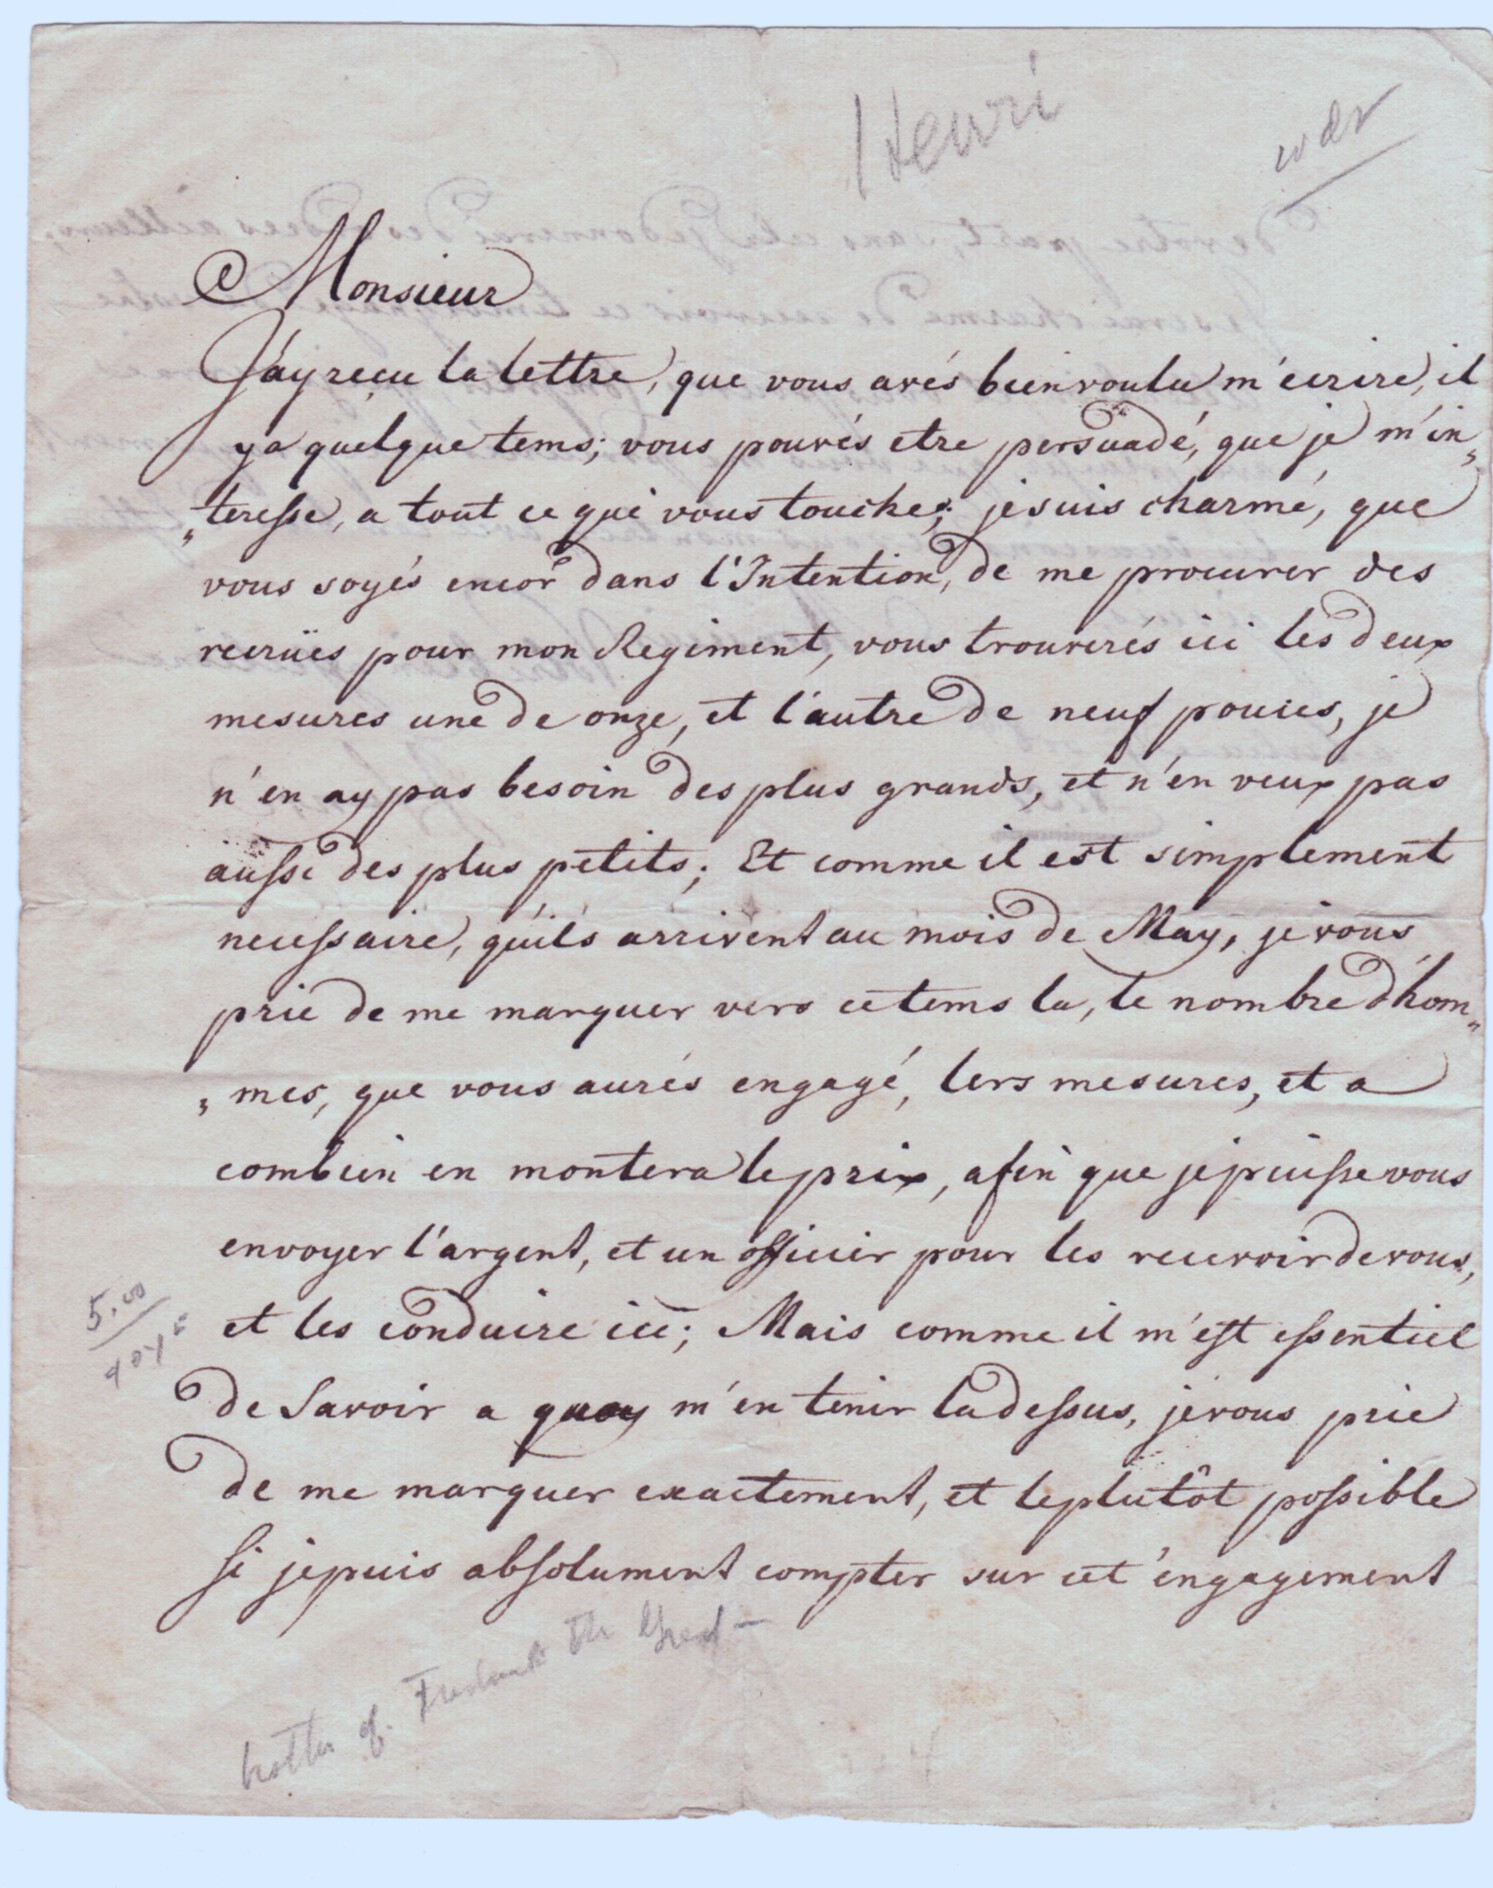 Henri
Monsieur
J'ay reçu la lettre, que vous avés bien voulu m'ecrire, il
y a quelque tems; vous pouvés etre persuadé, que je m'in„
„teresse, a tout ce qui vous touche; je suis charmé, que
vous soyés encor dans l'Intention, de me procurer des
recrües pour mon Regiment, vous trouverés ici les deux
mesures une de onze, et l'autre de neuf pouces, je
n'en ay pas besoin des plus grands, et n'en veux pas
aussi des plus petits; Et comme il est simplement
necessaire, qu'ils arrivent au mois de May, je vous
prie de me marquer vers ce tems la, le nombre d'hom„
„mes, que vous aurés engagé, lers mesures, et a
combien en montera le prix, afin que je puisse vous
envoyer l'argent, et un officier pour les recevoir de vous,
et les conduire ici; Mais comme il m'est essentiel
de Savoir a quoy m'en tenir la dessus, je vous prie
de me marquer exactement, et le plutôt possible
Si je puis absolument compter sur cet engagement
5.00
brother of Frederick the Great –